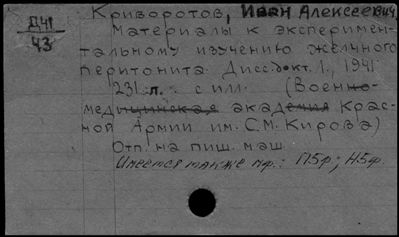 Криворотов, Иван Алексеевич.
Д41
43
Материалы к эксперимен-
тальному изучению желчного
перитонита. Дисс. докт. Л., 1941
231 л. с илл. (Военно-
медицинская академия Крас-
ной Армии им. С.М. Кирова)
Отп. на пиш. маш.
Имеется также мф.: П5ф; Н5ф